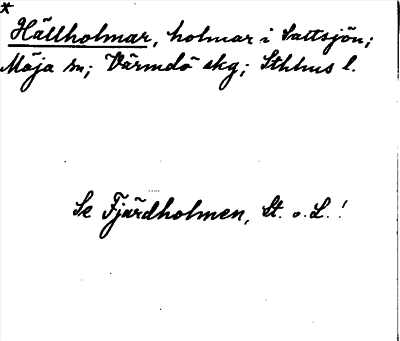 *
Hällholmar, holmar i Saltsjön;
Möja sn; Värmdö skg; Sthlms l.
Se Fjärdholmen, St. o. L. !